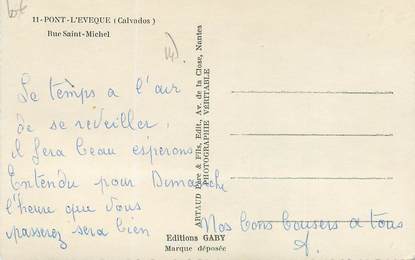 11-PONT-L'EVEQUE (Calvados)
Rue Saint-Michel
Le temps a l'air
de se reveiller.
il fera beau esperons
Entendu pour Dimanche
l'heure que vous
passerez sera bien
Nos bons baisers a tous
ARTAUD Père & Fils, Edit., Av. de la Close, Nantes
PHOTOGRAPHIE VÉRITABLE
Editions GABY
Marque déposée